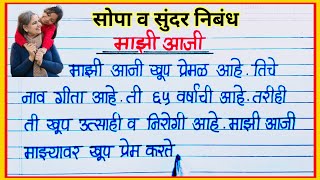 सोपा व सुंदर निबंध
माझी आजी
माझी आजी खूप प्रेमळ आहे. तिचे
नाव गीता आहे. ती ६५ वर्षाची आहे. तरीही
ती खूप उत्साही व निरोगी आहे. माझी आजी
माझ्यावर खूप प्रेम करते